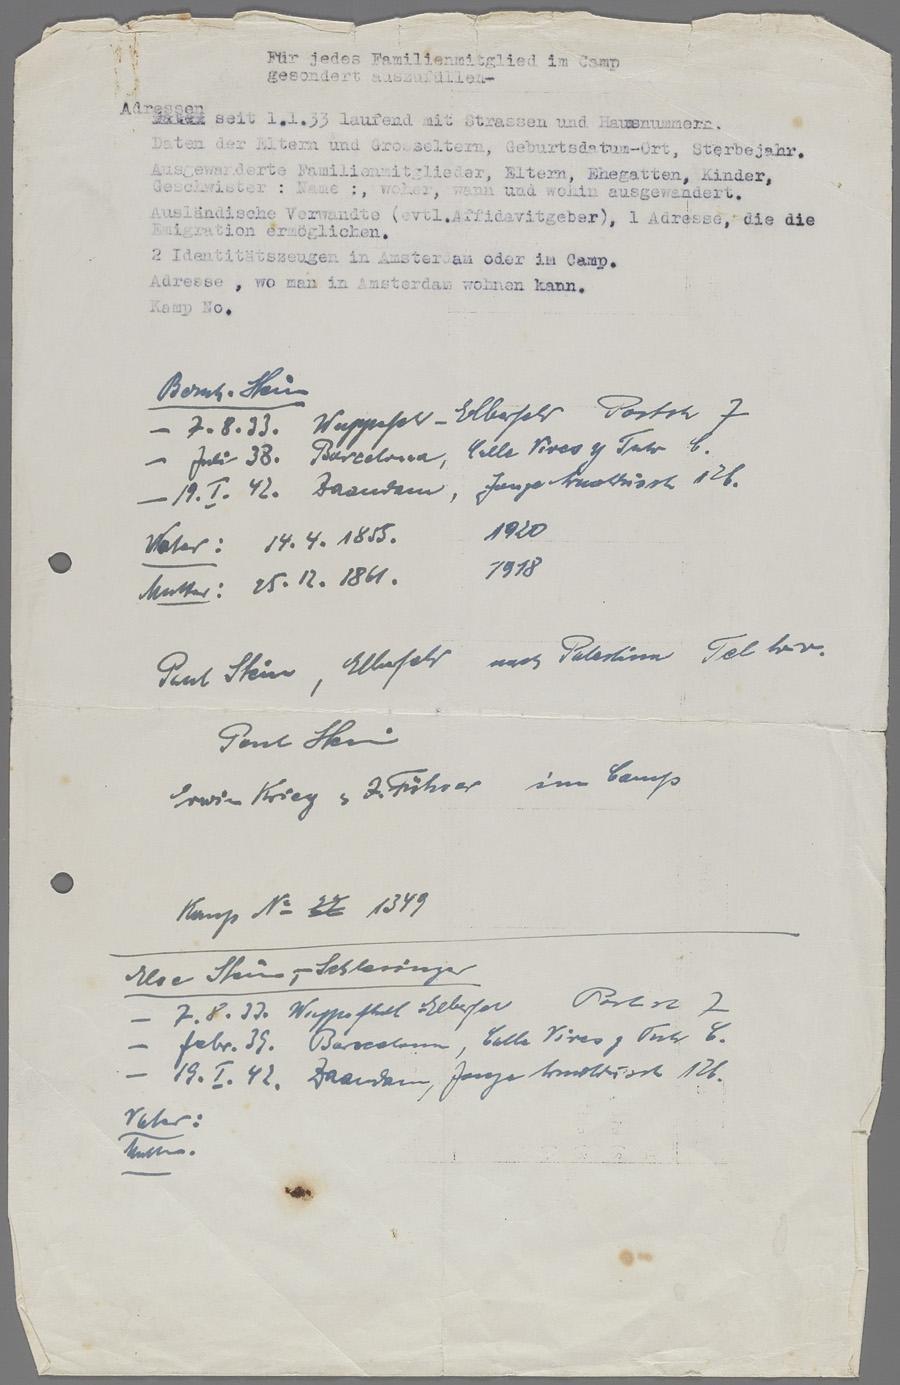 Für jedes Familienmitglied im Camp
gesondert auszufüllen-
Adressen
seit 1.1.33 laufend mit Strassen und Hausnummern.
Daten der Eltern und Grosseltern, Geburtsdatum-Ort, Sterbejahr.
Ausgewanderte Familienmitglieder, Eltern, Ehegatten, Kinder,
Geschwister : Name :, woher, wann und wohin ausgewandert.
Ausländische Verwandte (evtl.Affidavitgeber), 1 Adresse, die die
Emigration ermöglichen.
2 Identitätszeugen in Amsterdam oder im Camp.
Adresse , wo man in Amsterdam wohnen kann.
Kamp No.
Stein
- 7.8.33. - Elberfeld 7
- Juli 38. Barcelona, Calle Vives y Tuto 6.
- 19.I.42. Zaandam, 126.
Vater: 14.4.1855. 1920
Mutter: 25.12.1861. 1918
Paul Stein, Elberfeld nach Palestina Tel
Paul Stein
Erwin Krieg im Camp
Kamp No 1349
Else Stein,-Schlesinger
- 7.8.33. Elberfeld 7
- febr. 39. Barcelona, Calle Vives y Tuto 6.
- 19.I.42. Zaandam, 126.
Vater:
Mutter.